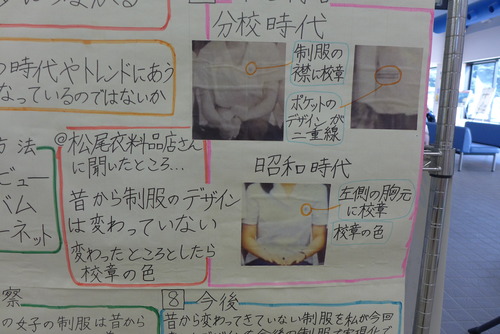 つながる
の時代やトレンドにあう
なっているのではないか
方法
ビュー
バム
ーネット
@松尾衣料品店さん
に聞いたところ…
昔から制服のデザイン
は変わっていない
変わったところとしたら
校章の色
分校時代
制服の
襟に校章
ポケットの
デザインが
二重線
昭和時代
左側の胸元
に校章
校章の色
察
の女子の制服は昔から
8 今後
昔から変わってきていない制服を私が今回